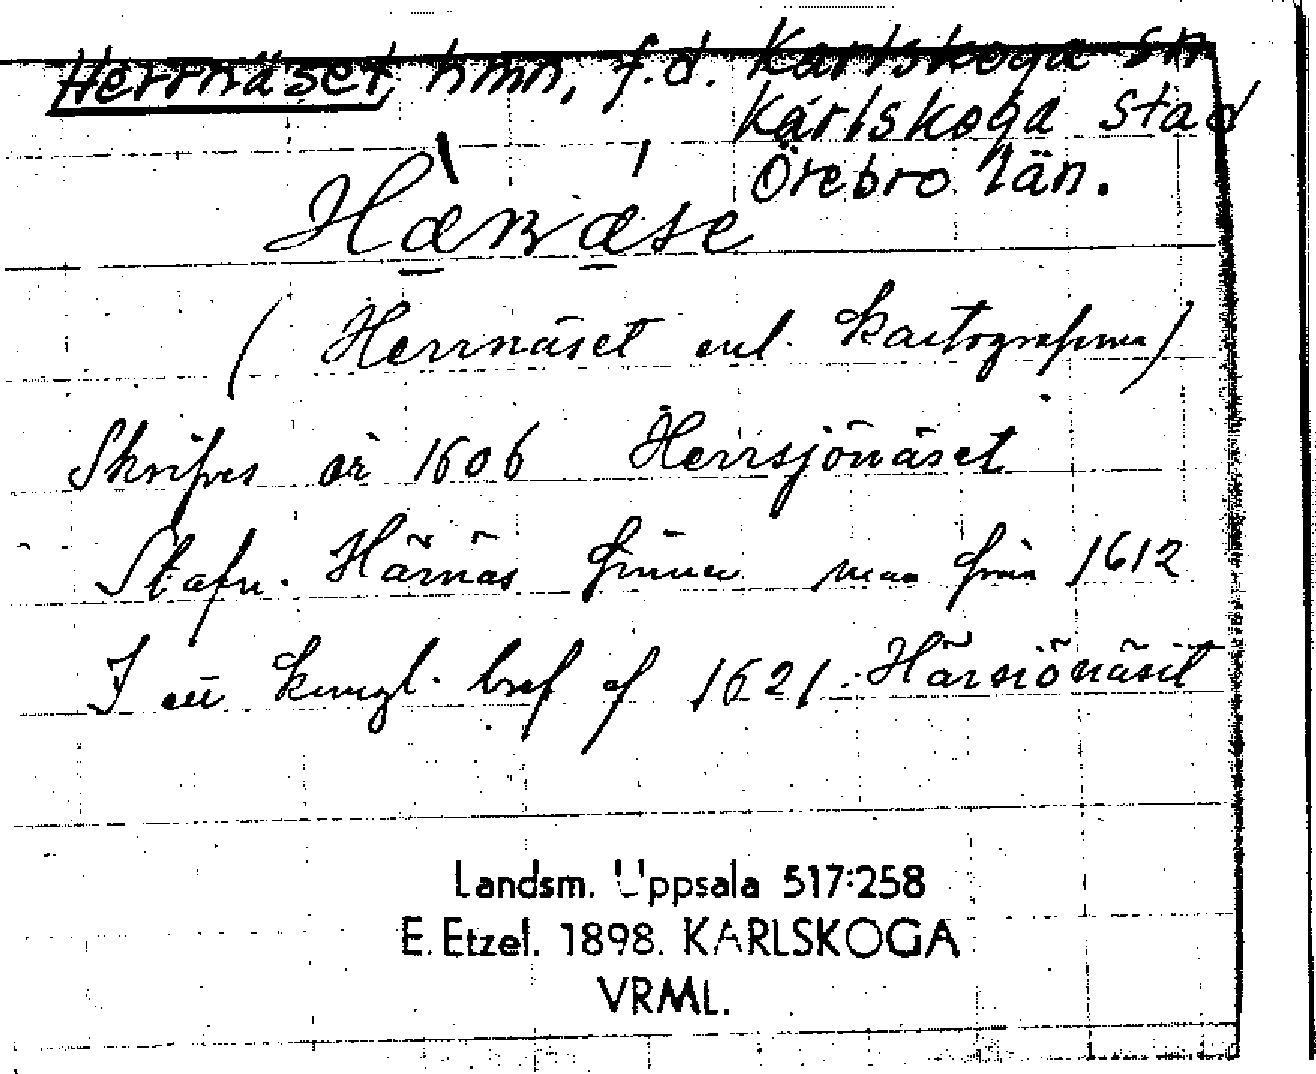 Herrnäset, hmn, f.d. Karlskoga sn
Karlskoga stad
Örebro län.
(Herrnäset enl. kartografierna)
Skrifves år 1606 Herrsjönäset
Stafn. Härnäs finner man från 1612
I ett kungl. bref af 1621. Härsiönäsit
Landsm. Uppsala 517:258
E. Etzel. 1898. KARLSKOGA
VRML.